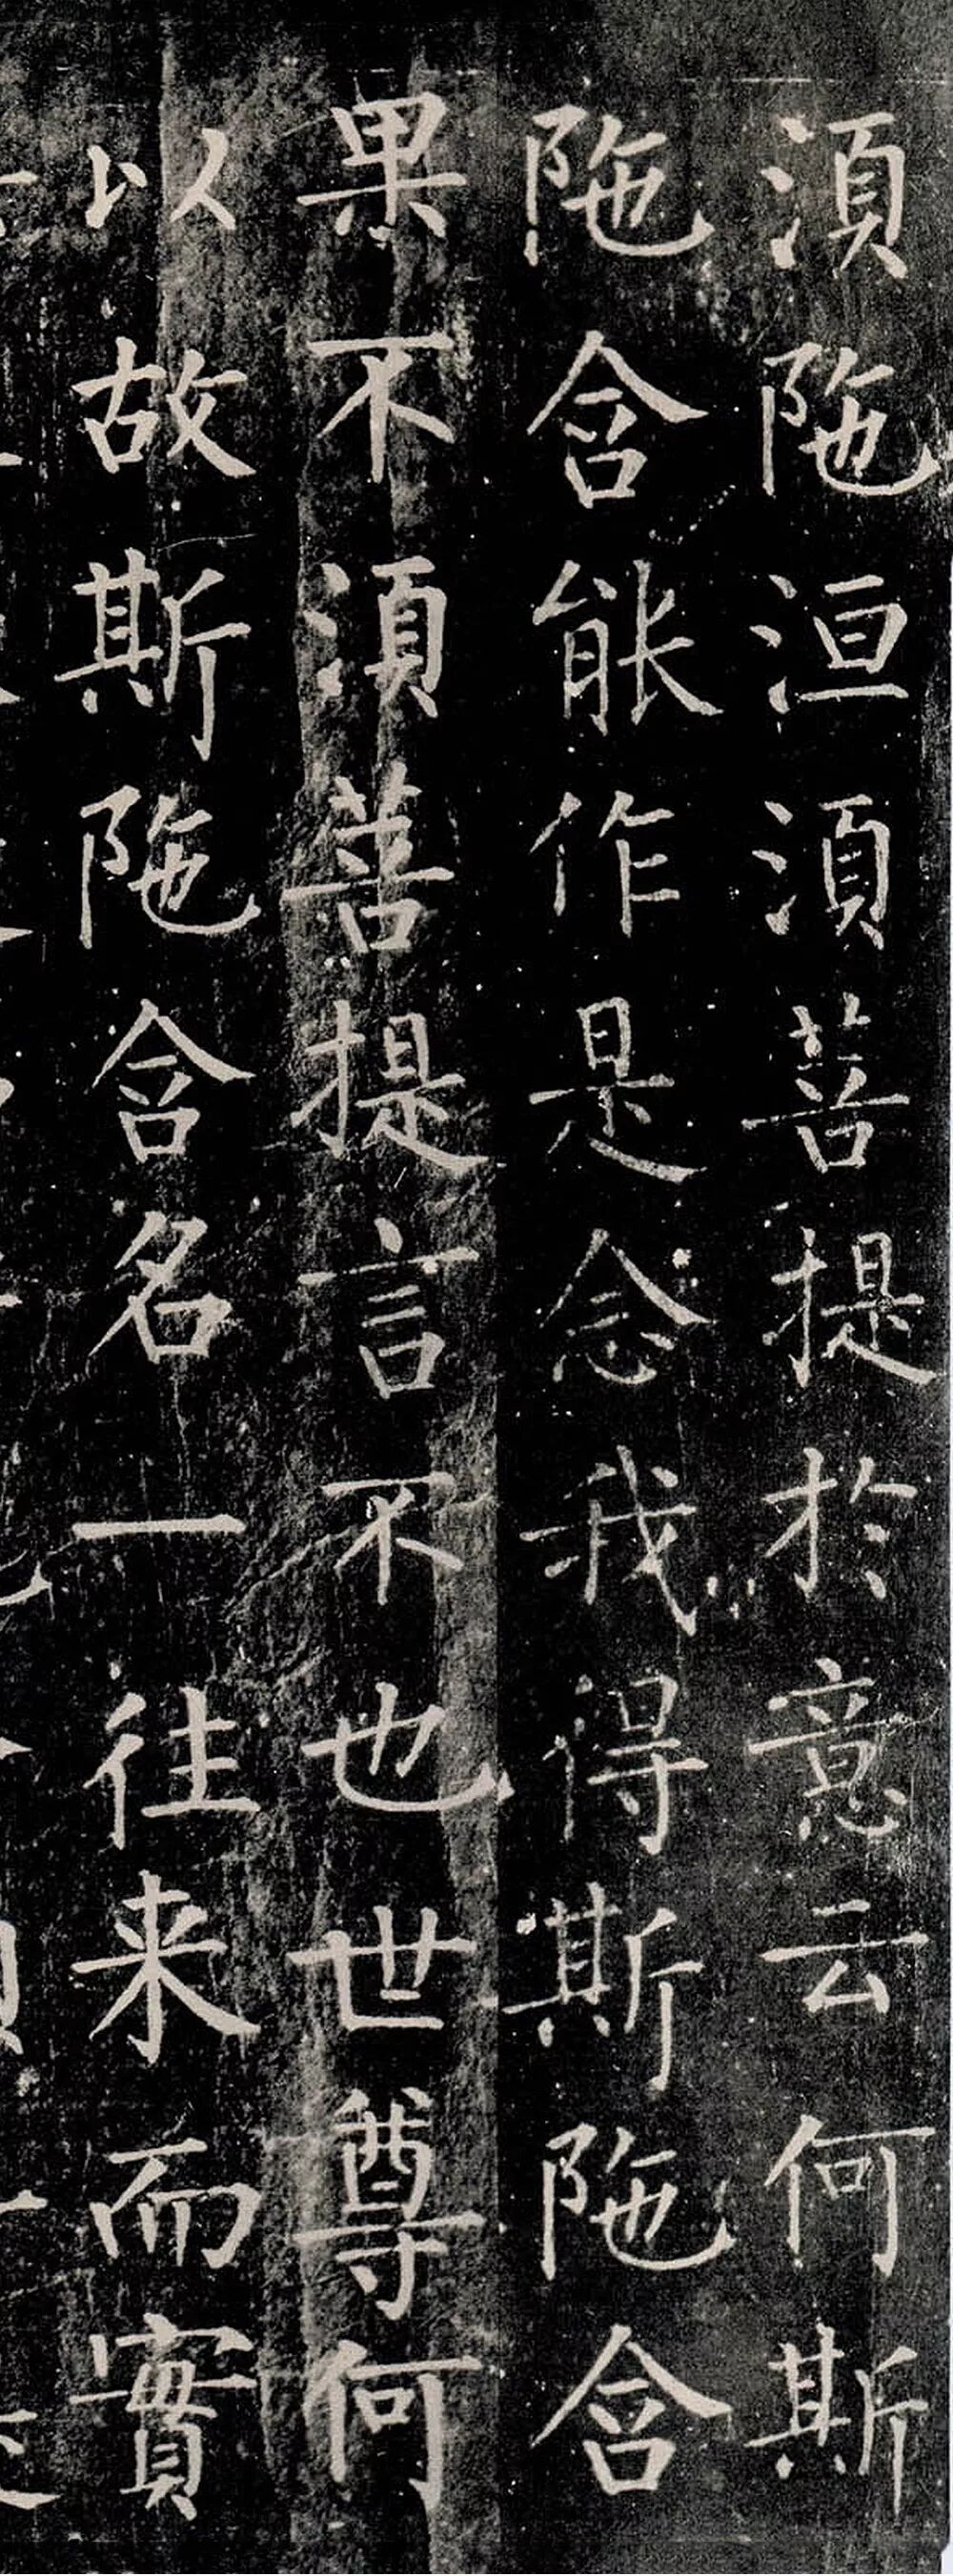 須陁洹須菩提於意云何斯
陁含能作是念我得斯陁含
果不須菩提言不也世尊何
以故斯陁含名一往来而實